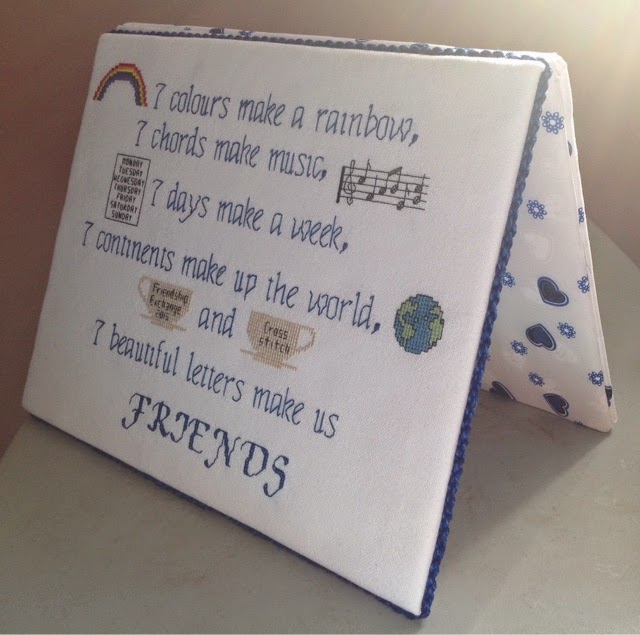 7 colours make a rainbow,
7 chords make music,
MONDAY
TUESDAY
WEDNESDAY
THURSDAY
FRIDAY
SATURDAY
SUNDAY
7 days make a week,
7 continents make up the world,
Friendship
Exchange
2015
and
Cross
stitch
7 beautiful letters make us
FRIENDS